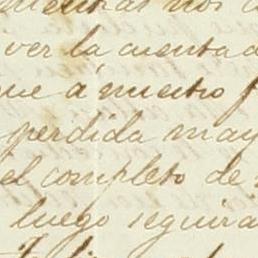 mientras nos
ver la cuenta d
que á nuestro f
perdida may
el completo de
luego seguira